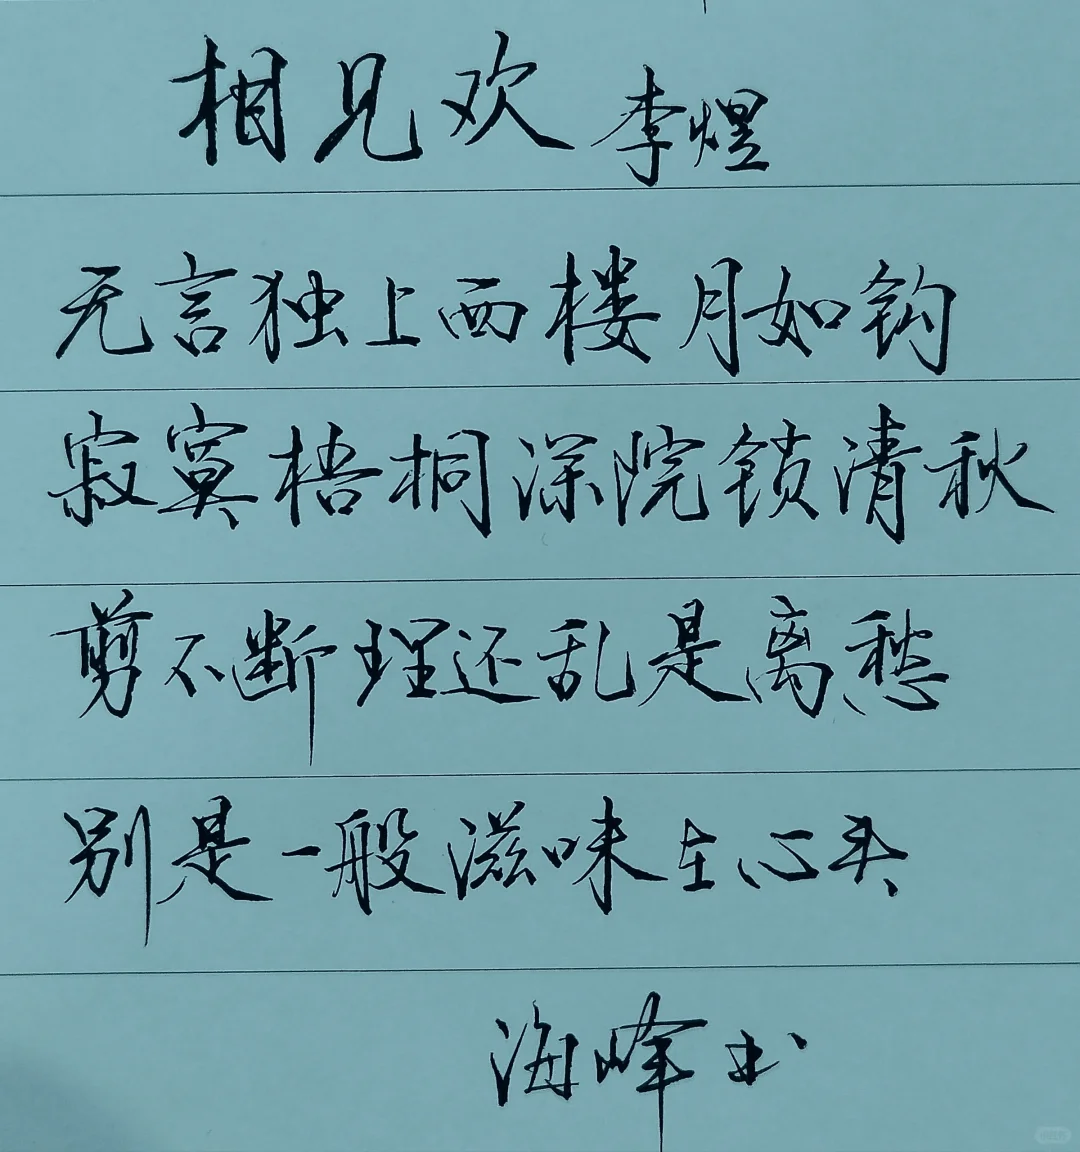 相见欢 李煜
无言独上西楼月如钩
寂寞梧桐深院锁清秋
剪不断理还乱是离愁
别是一般滋味在心头
海峰书